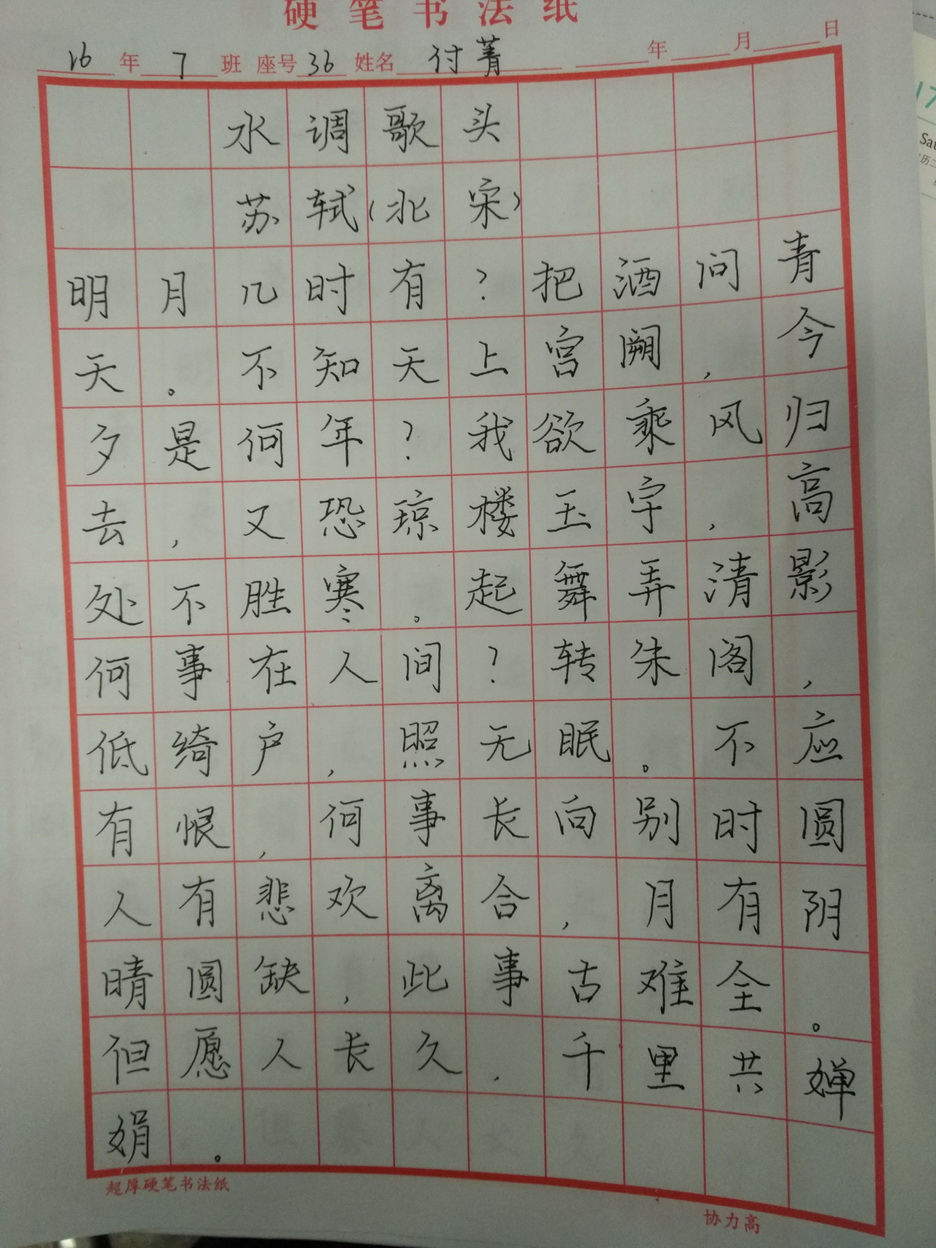 硬笔书法纸
16年7班 座号36 姓名付菁 年 月 日
水调歌头
苏轼(北宋)
明月几时有?把酒问青
天。不知天上宫阙,今
夕是何年?我欲乘风归
去,又恐琼楼玉宇,高
处不胜寒。起舞弄清影
何事在人间?转朱阁,
低绮户,照无眠。不应
有恨,何事长向别时圆
人有悲欢离合,月有阴
晴圆缺,此事古难全。
但愿人长久,千里共婵
娟。
超厚硬笔书法纸
协力高
Sat